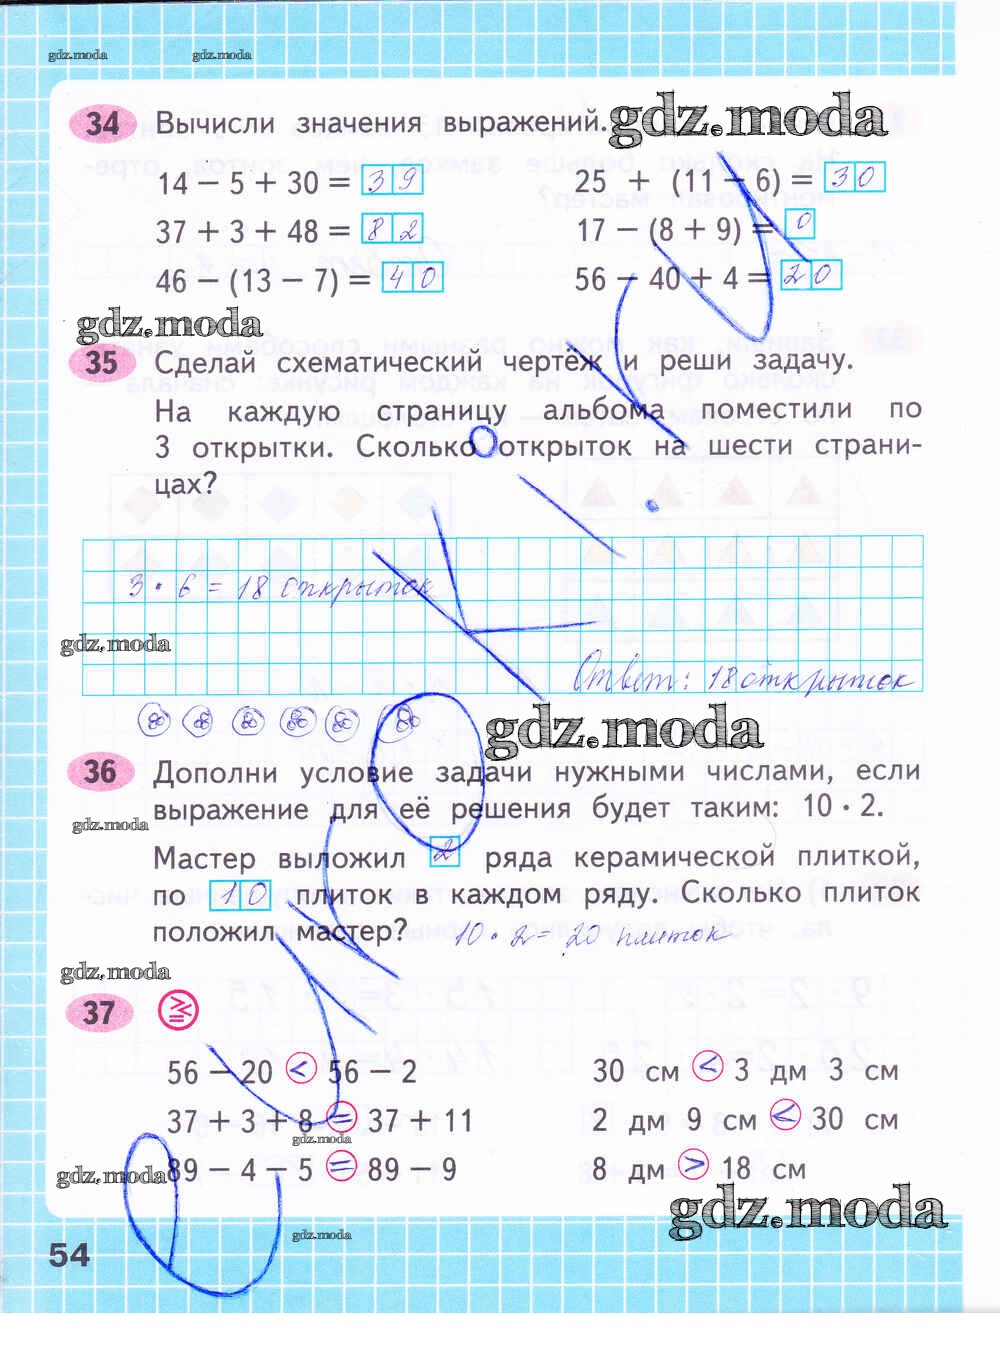 gdz.moda gdz.moda
34 Вычисли значения выражений. gdz.moda
14 − 5 + 30 = 39
25 + (11 − 6) = 30
37 + 3 + 48 = 82
17 − (8 + 9) = 0
46 − (13 − 7) = 40
56 − 40 + 4 = 20
gdz.moda
35 Сделай схематический чертёж и реши задачу.
На каждую страницу альбома поместили по
3 открытки. Сколько открыток на шести страни-
цах?
3 · 6 = 18 открыток
gdz.moda
Ответ: 18 открыток
gdz.moda
36 Дополни условие задачи нужными числами, если
выражение для её решения будет таким: 10 · 2.
gdz.moda
Мастер выложил 2 ряда керамической плиткой,
по 10 плиток в каждом ряду. Сколько плиток
положил мастер? 10 · 2 = 20 плиток
gdz.moda
37
56 − 20 < 56 − 2
30 см < 3 дм 3 см
37 + 3 + 8 = 37 + 11
2 дм 9 см < 30 см
gdz.moda
89 − 4 − 5 = 89 − 9
8 дм > 18 см
gdz.moda
gdz.moda
gdz.moda
54